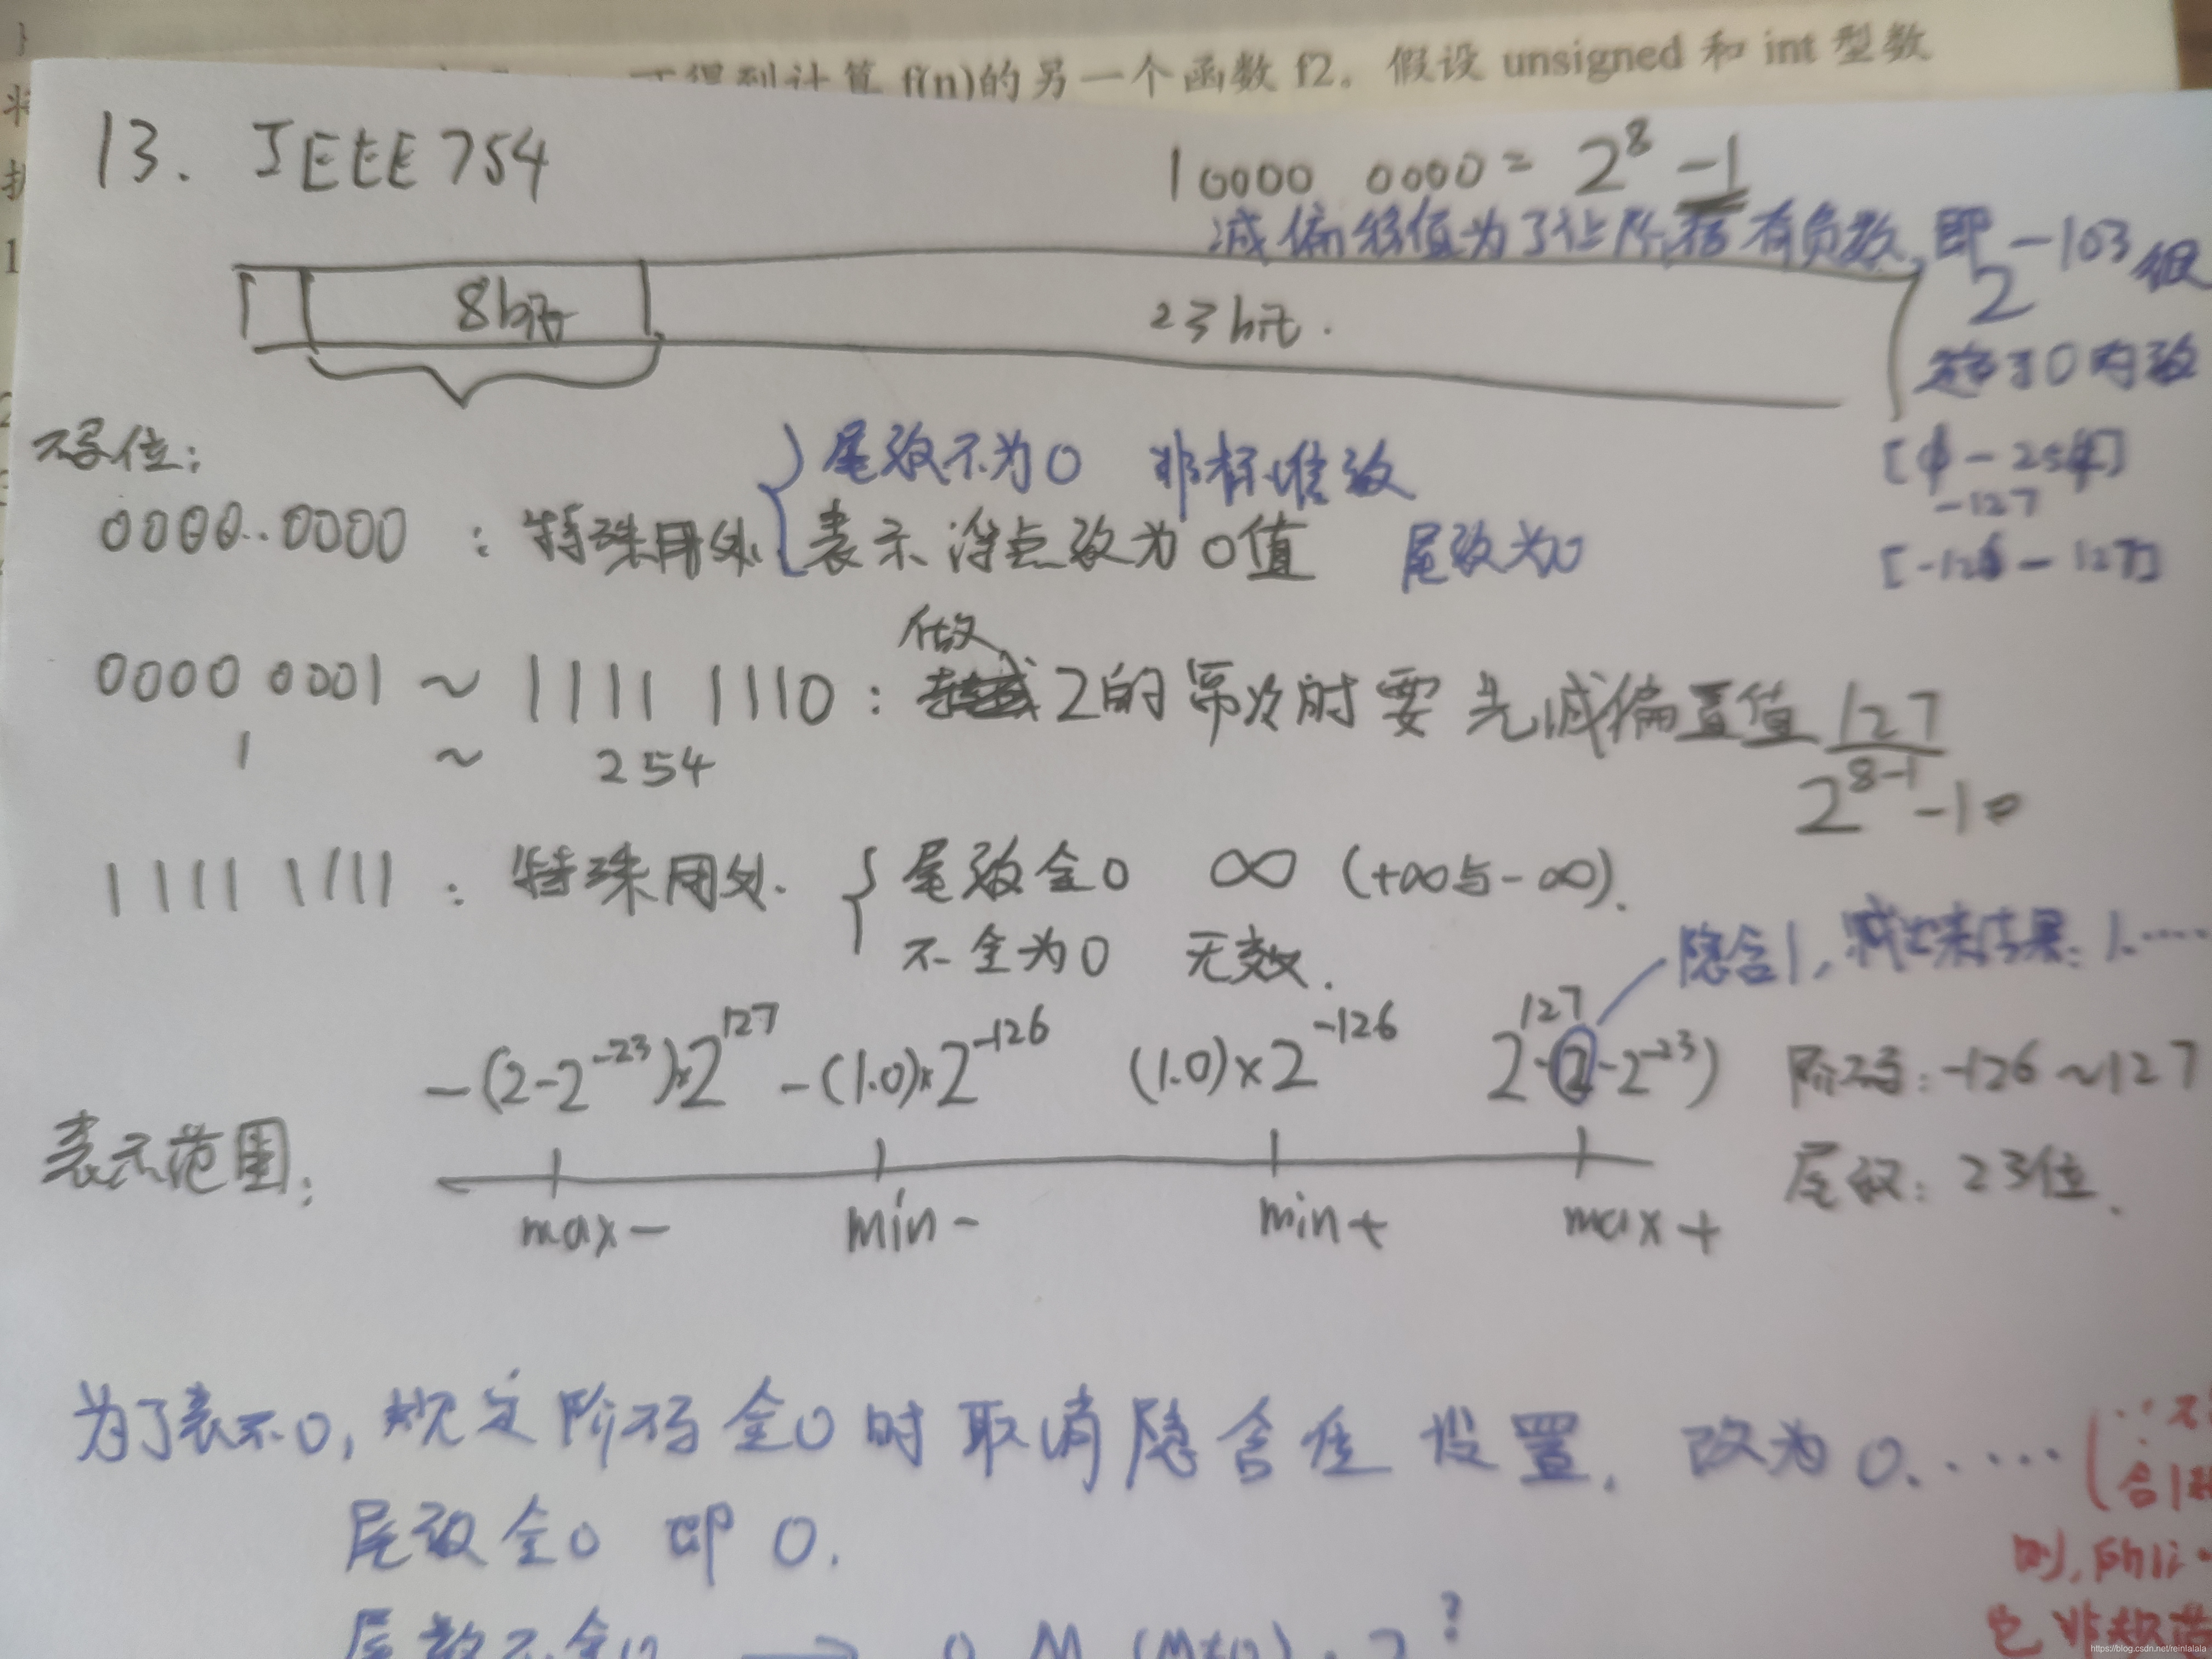 得到计算 f(n)的另一个函数 f2。假设 unsigned 和 int 型数
13. IEEE 754
10000 0000 = 2^8 -1
减偏移值为了让阶码有负数,即 2^-103 很
接近0的数
8bit
23bit.
[1-254]
-127
[-126-127]
码位:
尾数不为0 非标准数
0000..0000 : 特殊用处 表示浮点数为0值 尾数为0
做
0000 0001 ~ 1111 1110 : 2的幂次时要先减偏置值 127
1 ~ 254
2^8-1 -1
1111 1111 : 特殊用处. 尾数全0 ∞ (+∞与-∞).
不全为0 无效.
隐含1, 1.····
-(2-2^-23)×2^127 -(1.0)×2^-126 (1.0)×2^-126 2^127·(2-2^-23) 阶码: -126~127
表示范围: 尾数: 23位.
max- min- min+ max+
为了表示0, 规定阶码全0时取消隐含位设置. 改为0.·····
合1
尾数全0 即0.
则,
尾数不全0 → 0.M (M≠0)·2^?
也非规范
https://blog.csdn.net/reinlalala